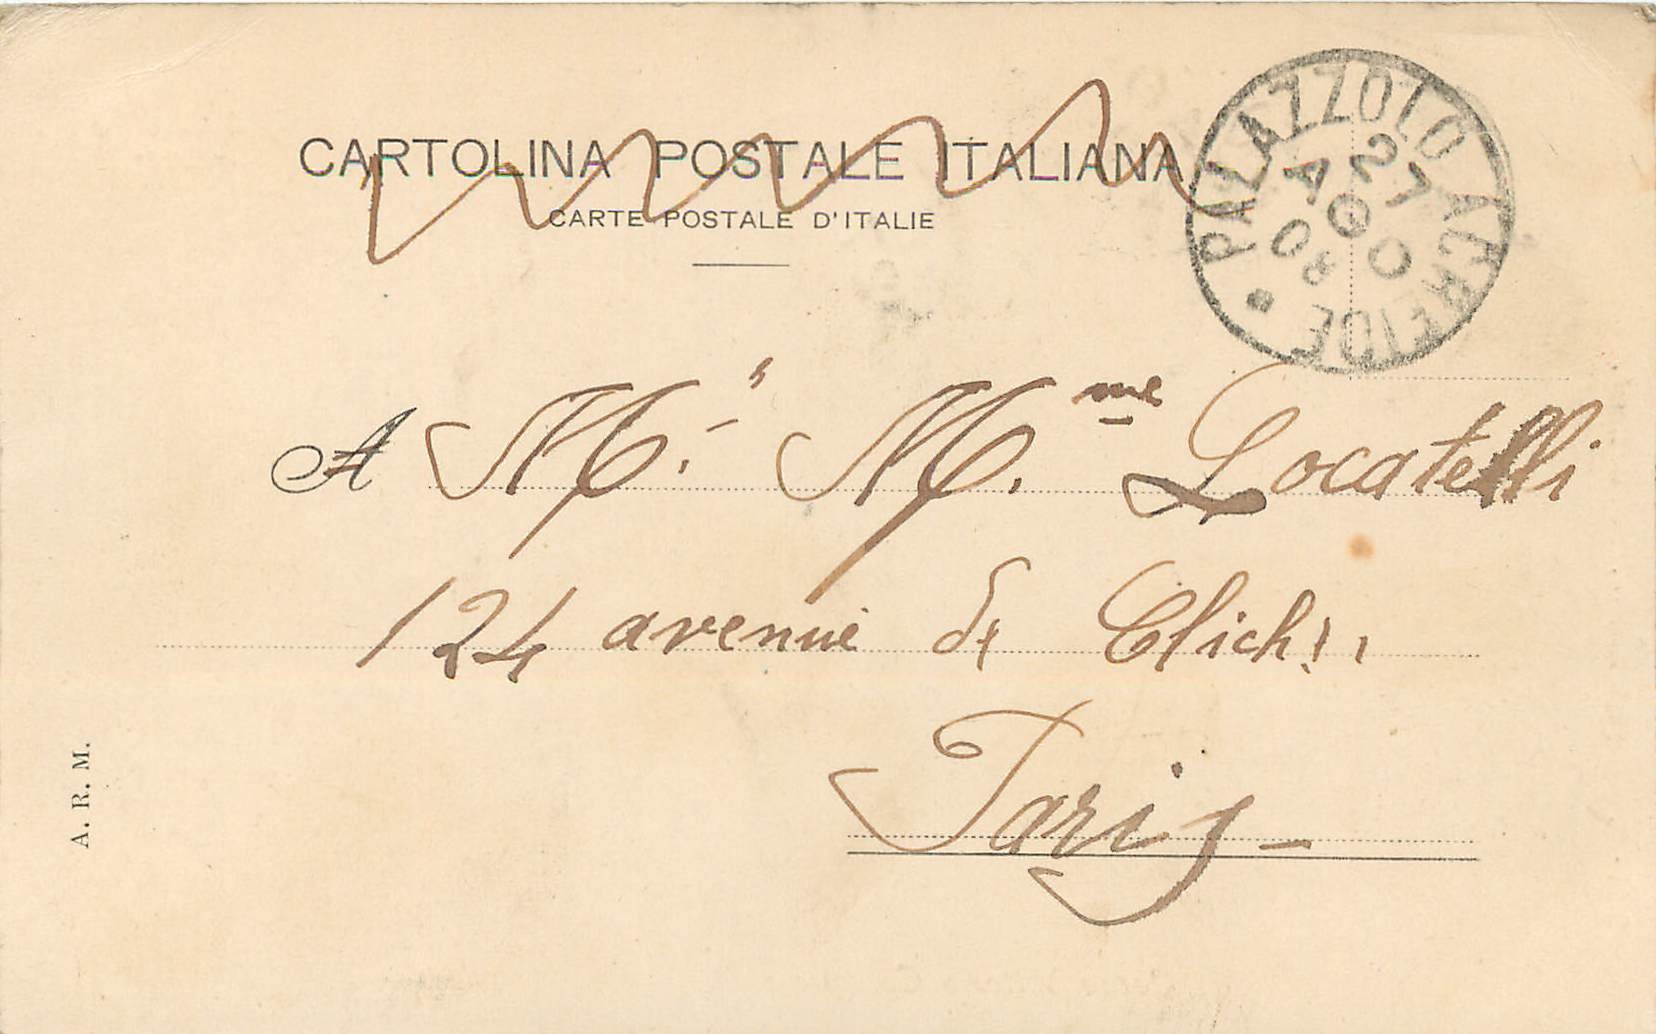 CARTOLINA POSTALE ITALIANA
CARTE POSTALE D'ITALIE
PALAZZOLO ACREIDE
27
AGO
08
A M. M.me Locatelli
124 avenue de Clichy
Paris
A. R. M.